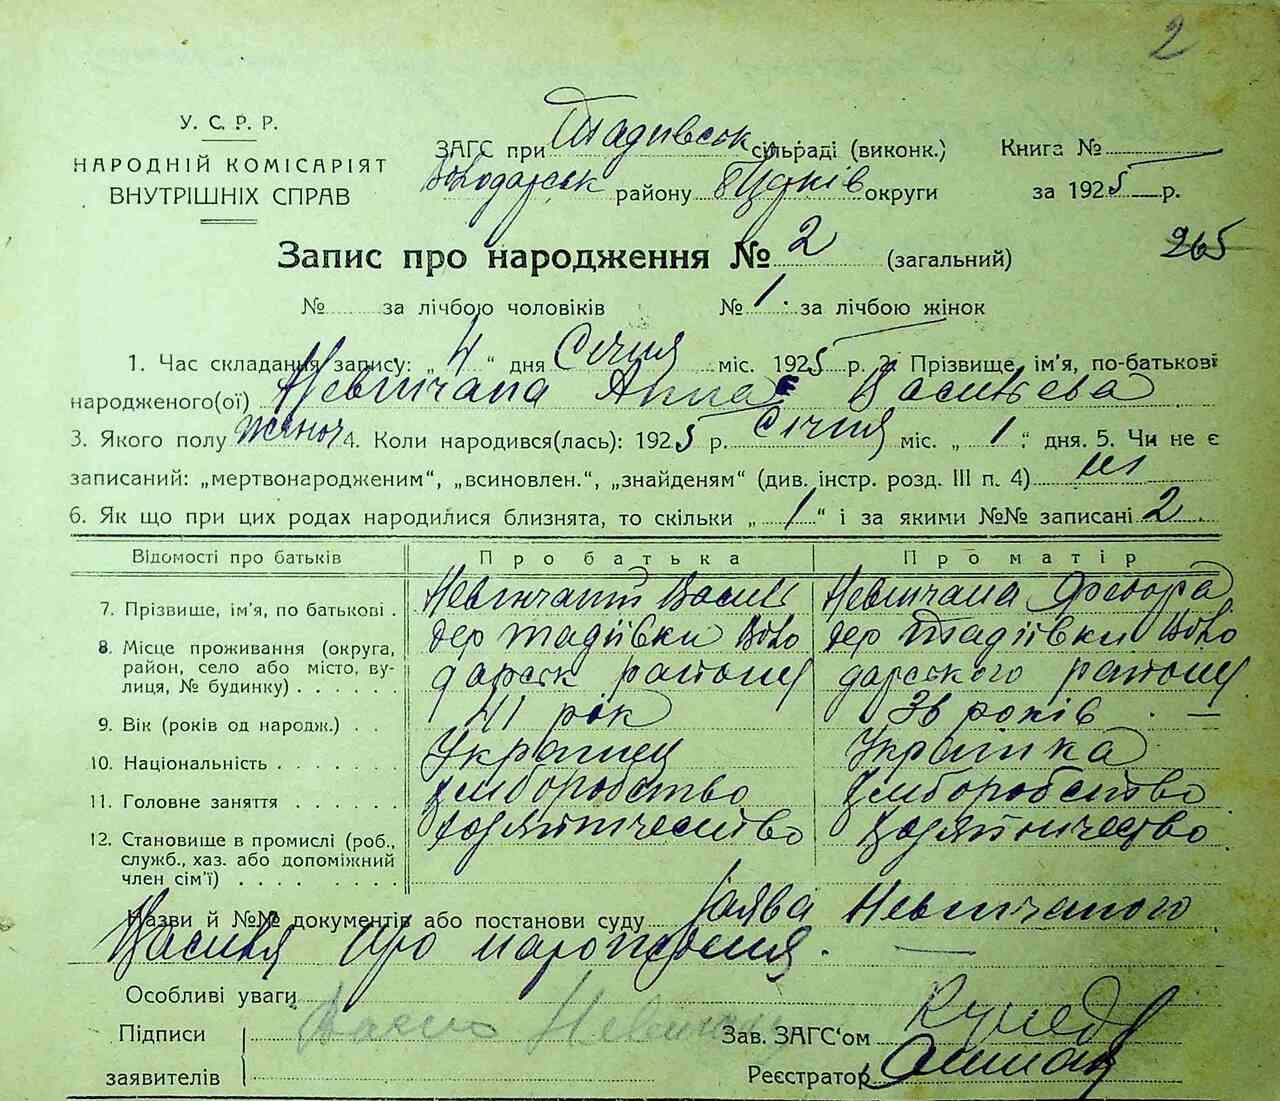 2
У. С. Р. Р.
НАРОДНІЙ КОМІСАРІЯТ
ВНУТРІШНІХ СПРАВ
ЗАГС при Тадіївськ сільраді (виконк.) Книга №
Володарськ району БЦерків округи за 1925 р.
Запис про народження № 2 (загальний) 265
№ за лічбою чоловіків № 1. за лічбою жінок
1. Час складання запису: „ 4 “ дня Січня міс. 1925 р. 2. Прізвище, ім'я, по-батькові
народженого(ої) Невінчана Анна Васильєва
3. Якого полу жіноч 4. Коли народився(лась): 1925 р. Січня міс. „ 1 “ дня. 5. Чи не є
записаний: „мертвонародженим“, „всиновлен.“, „знайденям“ (див. інстр. розд. III п. 4) ні
6. Як що при цих родах народилися близнята, то скільки „ 1 “ і за якими №№ записані 2
Відомості про батьків Про батька Про матір
7. Прізвище, ім'я, по батькові . Невінчаний Василь Невінчана Федора
8. Місце проживання (округа, район, село або місто, вулиця, № будинку) . . . . . . дер Тадіївки Воло дер Тадіївки Воло
дарськ району дарського району
9. Вік (років од народж.) . . 41 рік 36 років . —
10. Національність . . . . . . . Українец Українка
11. Головне заняття . . . . . . землеробство землеробство
12. Становище в промислі (роб., служб., хаз. або допоміжний член сім'ї) . . . . . . . .
Назви й №№ документів або постанови суду Заява Невінчаного
Василя про народження. —
Особливі уваги
Підписи Василь Невінчан Зав. ЗАГС'ом
заявителів Реєстратор